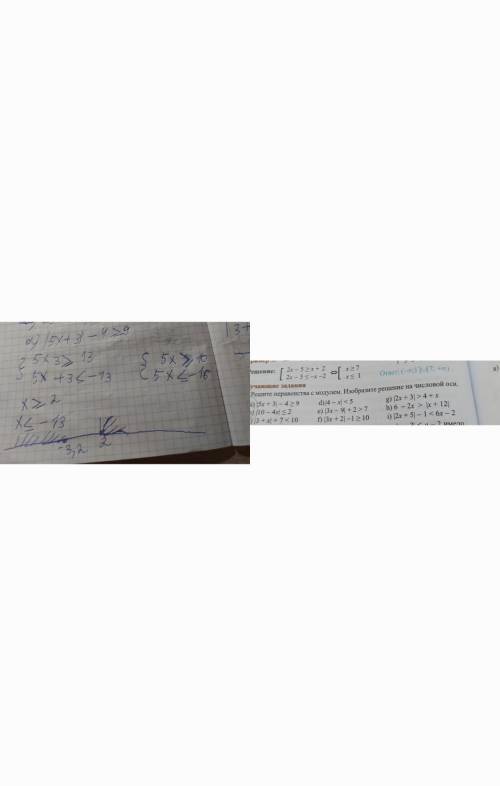 a) |5x+3| - 4 ≥ 9
{ 5x+3 ≥ 13
5x +3 ≤ -13
{ 5x ≥ 10
5x ≤ -16
x ≥ 2
x ≤ -13
-3,2 2
3+
Решение: { 2x – 5 ≥ x + 2
2x – 5 ≤ –x –2 ⇔ [ x ≥ 7
x ≤ 1
Ответ: (–∞;1]∪[7; +∞)
задания
Решите неравенства с модулем. Изобразите решение на числовой оси.
a) |5x + 3| – 4 ≥ 9 d) |4 – x| < 5 g) |2x + 3| > 4 + x
|10 – 4x| ≤ 2 e) |3x – 9| + 2 > 7 h) 6 – 2x > |x + 12|
|3 + x| + 7 < 10 f) |3x + 2| –1 ≥ 10 i) |2x + 5| – 1 < 6x – 2